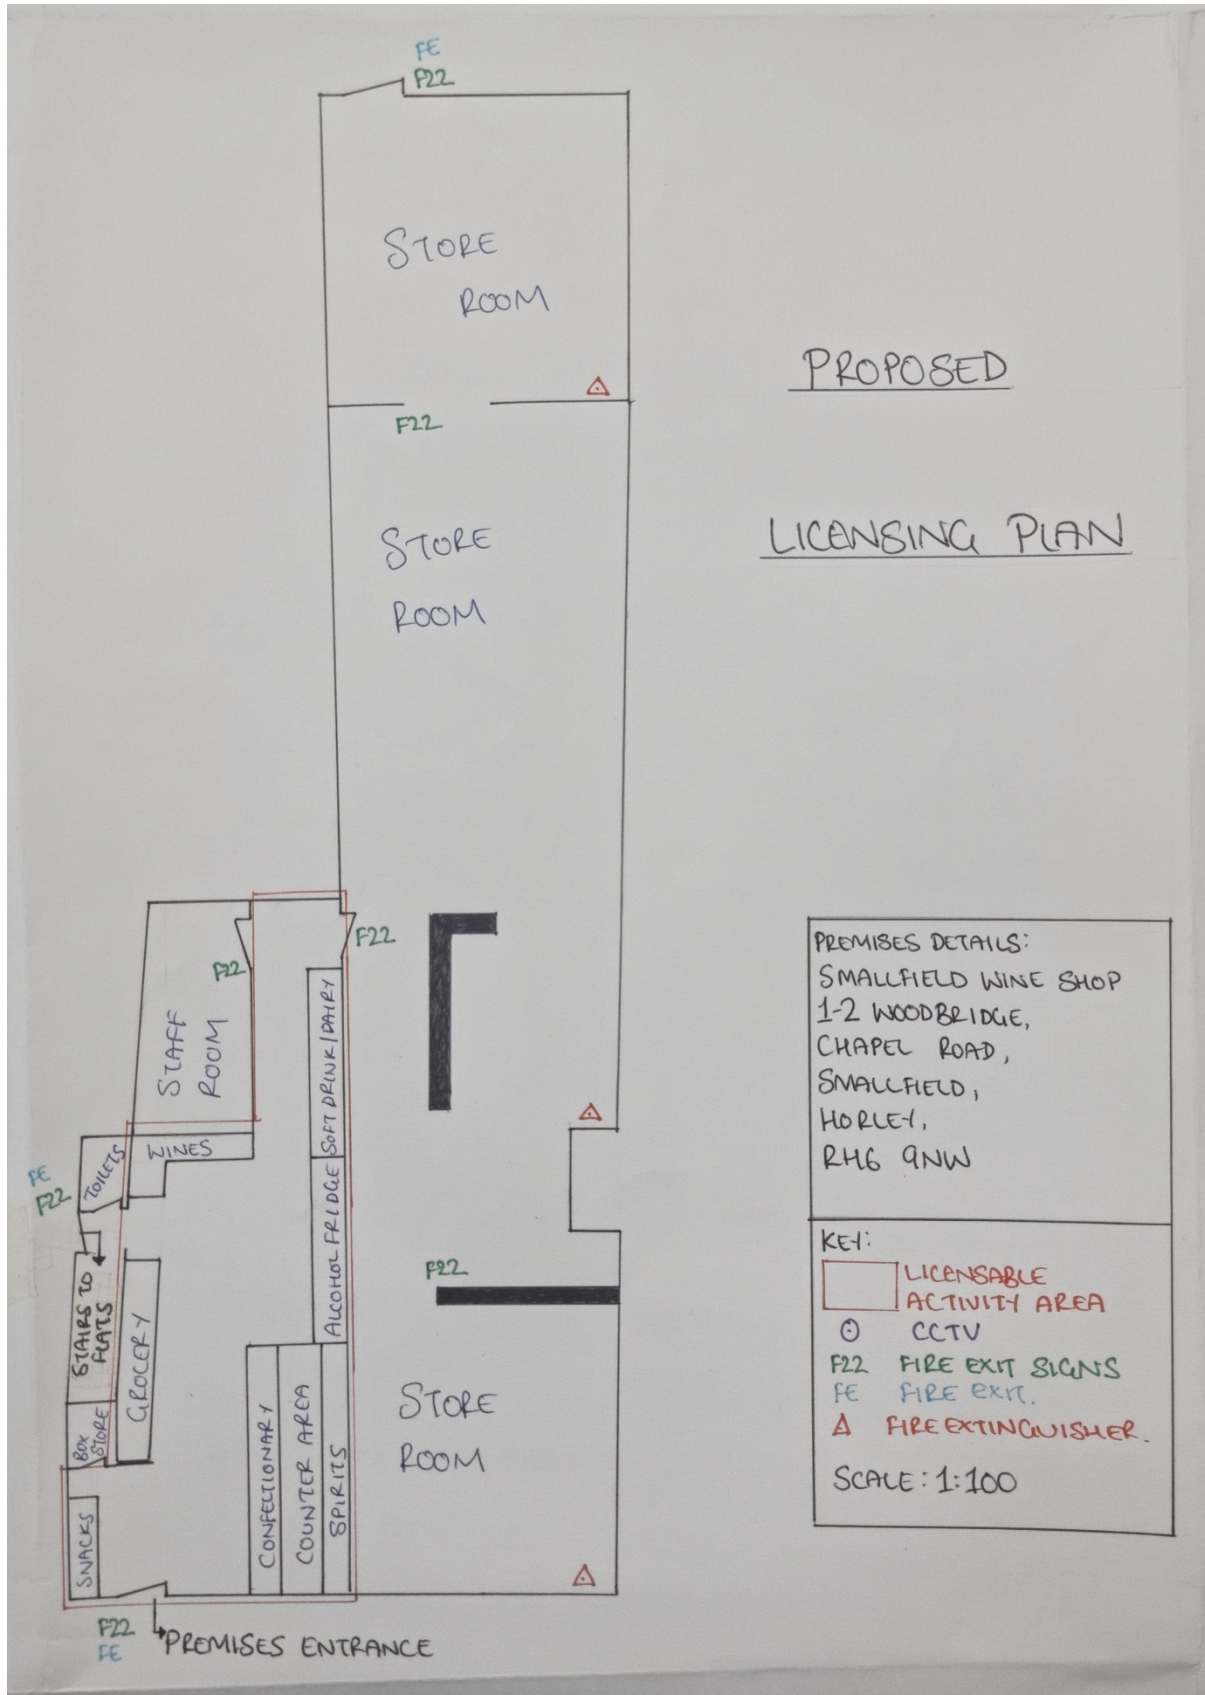 FE
F22
STORE
ROOM
PROPOSED
F22
LICENSING PLAN
STORE
ROOM
F22
F22
STAFF
ROOM
SOFT DRINK/DAIRY
WINES
TOILETS
FE
F22
ALCOHOL FRIDGE
F22
STAIRS TO
FLATS
GROCERY
BOX
STORE
SNACKS
CONFECTIONARY
COUNTER AREA
SPIRITS
STORE
ROOM
F22
FE
PREMISES ENTRANCE
PREMISES DETAILS:
SMALLFIELD WINE SHOP
1-2 WOODBRIDGE,
CHAPEL ROAD,
SMALLFIELD,
HORLEY,
RH6 9NW
KEY:
LICENSABLE
ACTIVITY AREA
CCTV
F22 FIRE EXIT SIGNS
FE FIRE EXIT.
FIRE EXTINGUISHER.
SCALE: 1:100